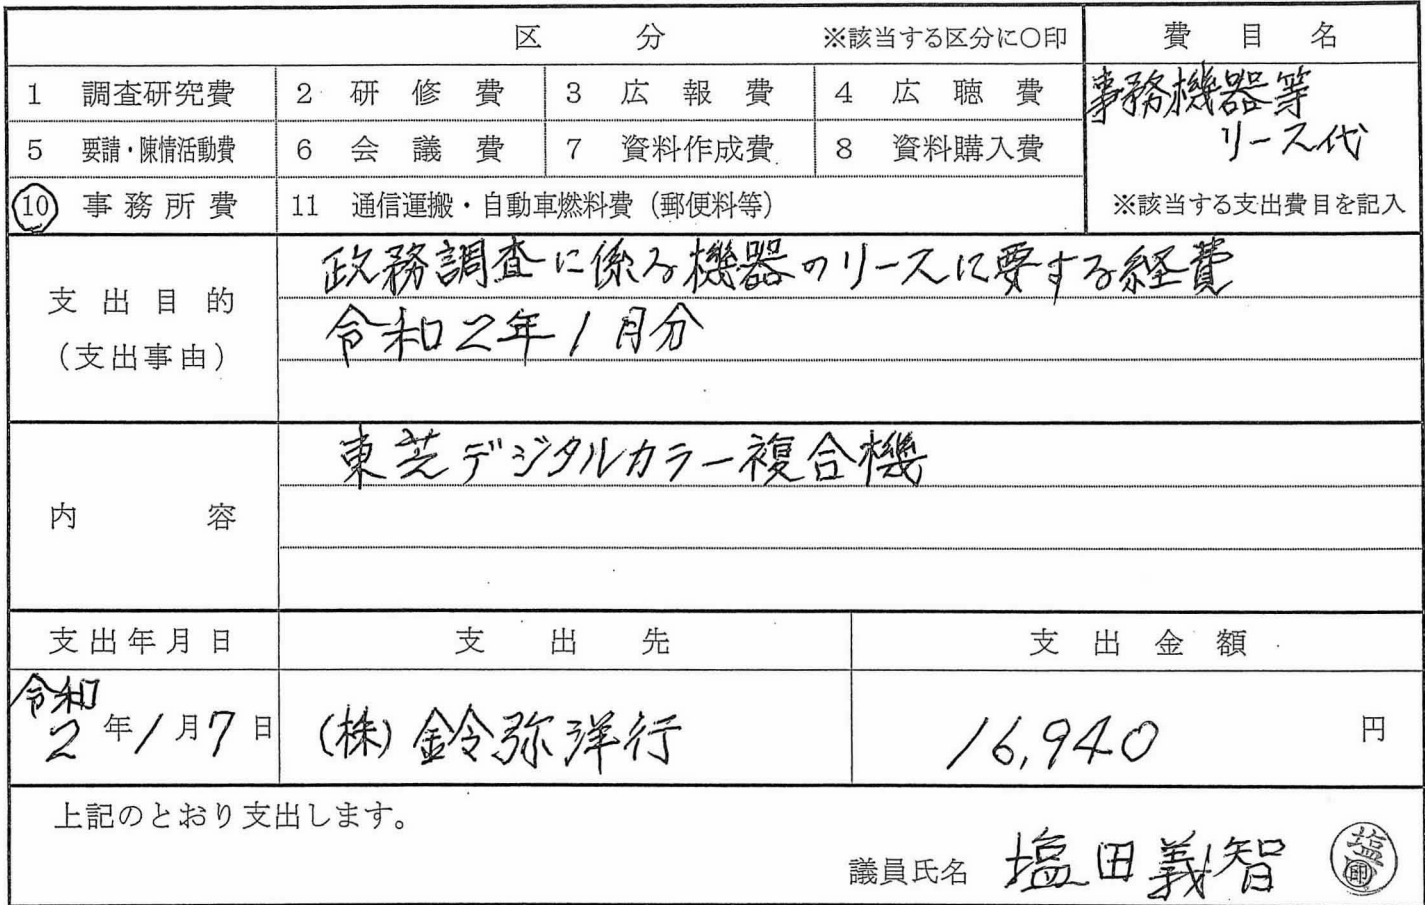 区分 ※該当する区分に〇印 費目名
1 調査研究費 2 研修費 3 広報費 4 広聴費 事務機器等
5 要請・陳情活動費 6 会議費 7 資料作成費 8 資料購入費 リース代
10 事務所費 11 通信運搬・自動車燃料費（郵便料等） ※該当する支出費目を記入
政務調査に係る機器のリースに要する経費
支出目的
令和2年1月分
（支出事由）
東芝デジタルカラー複合機
内容
支出年月日 支出先 支出金額
令和
2年1月7日 (株)鈴弥洋行 16,940円
上記のとおり支出します。
議員氏名 塩田義智 塩 印